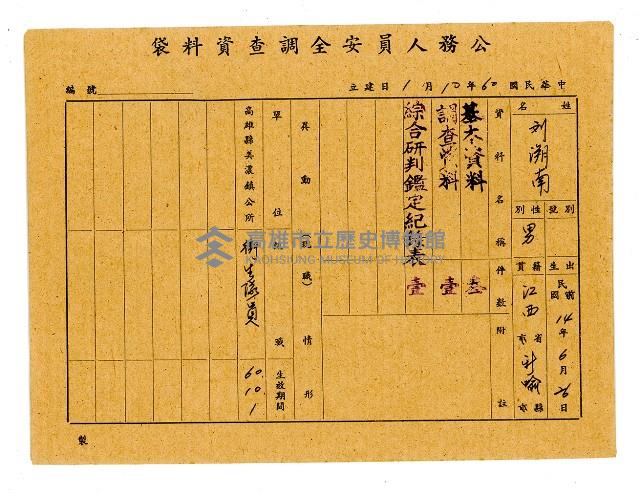 公務人員安全調查資料袋
中華民國60年10月1日建立
編號
姓名
刘溯南
別號
性別
男
籍貫
江西省市新喻縣市
出生
民國前14年6月26日
資料名稱
件數
附註
基本資料 壹
調查資料 壹
綜合研判鑑定紀錄表 壹
異動(現職)情形
單位
職
生效期間
高雄縣美濃鎮公所
衛生隊員
60.10.1
製
高雄市立歷史博物館
KAOHSIUNG MUSEUM OF HISTORY